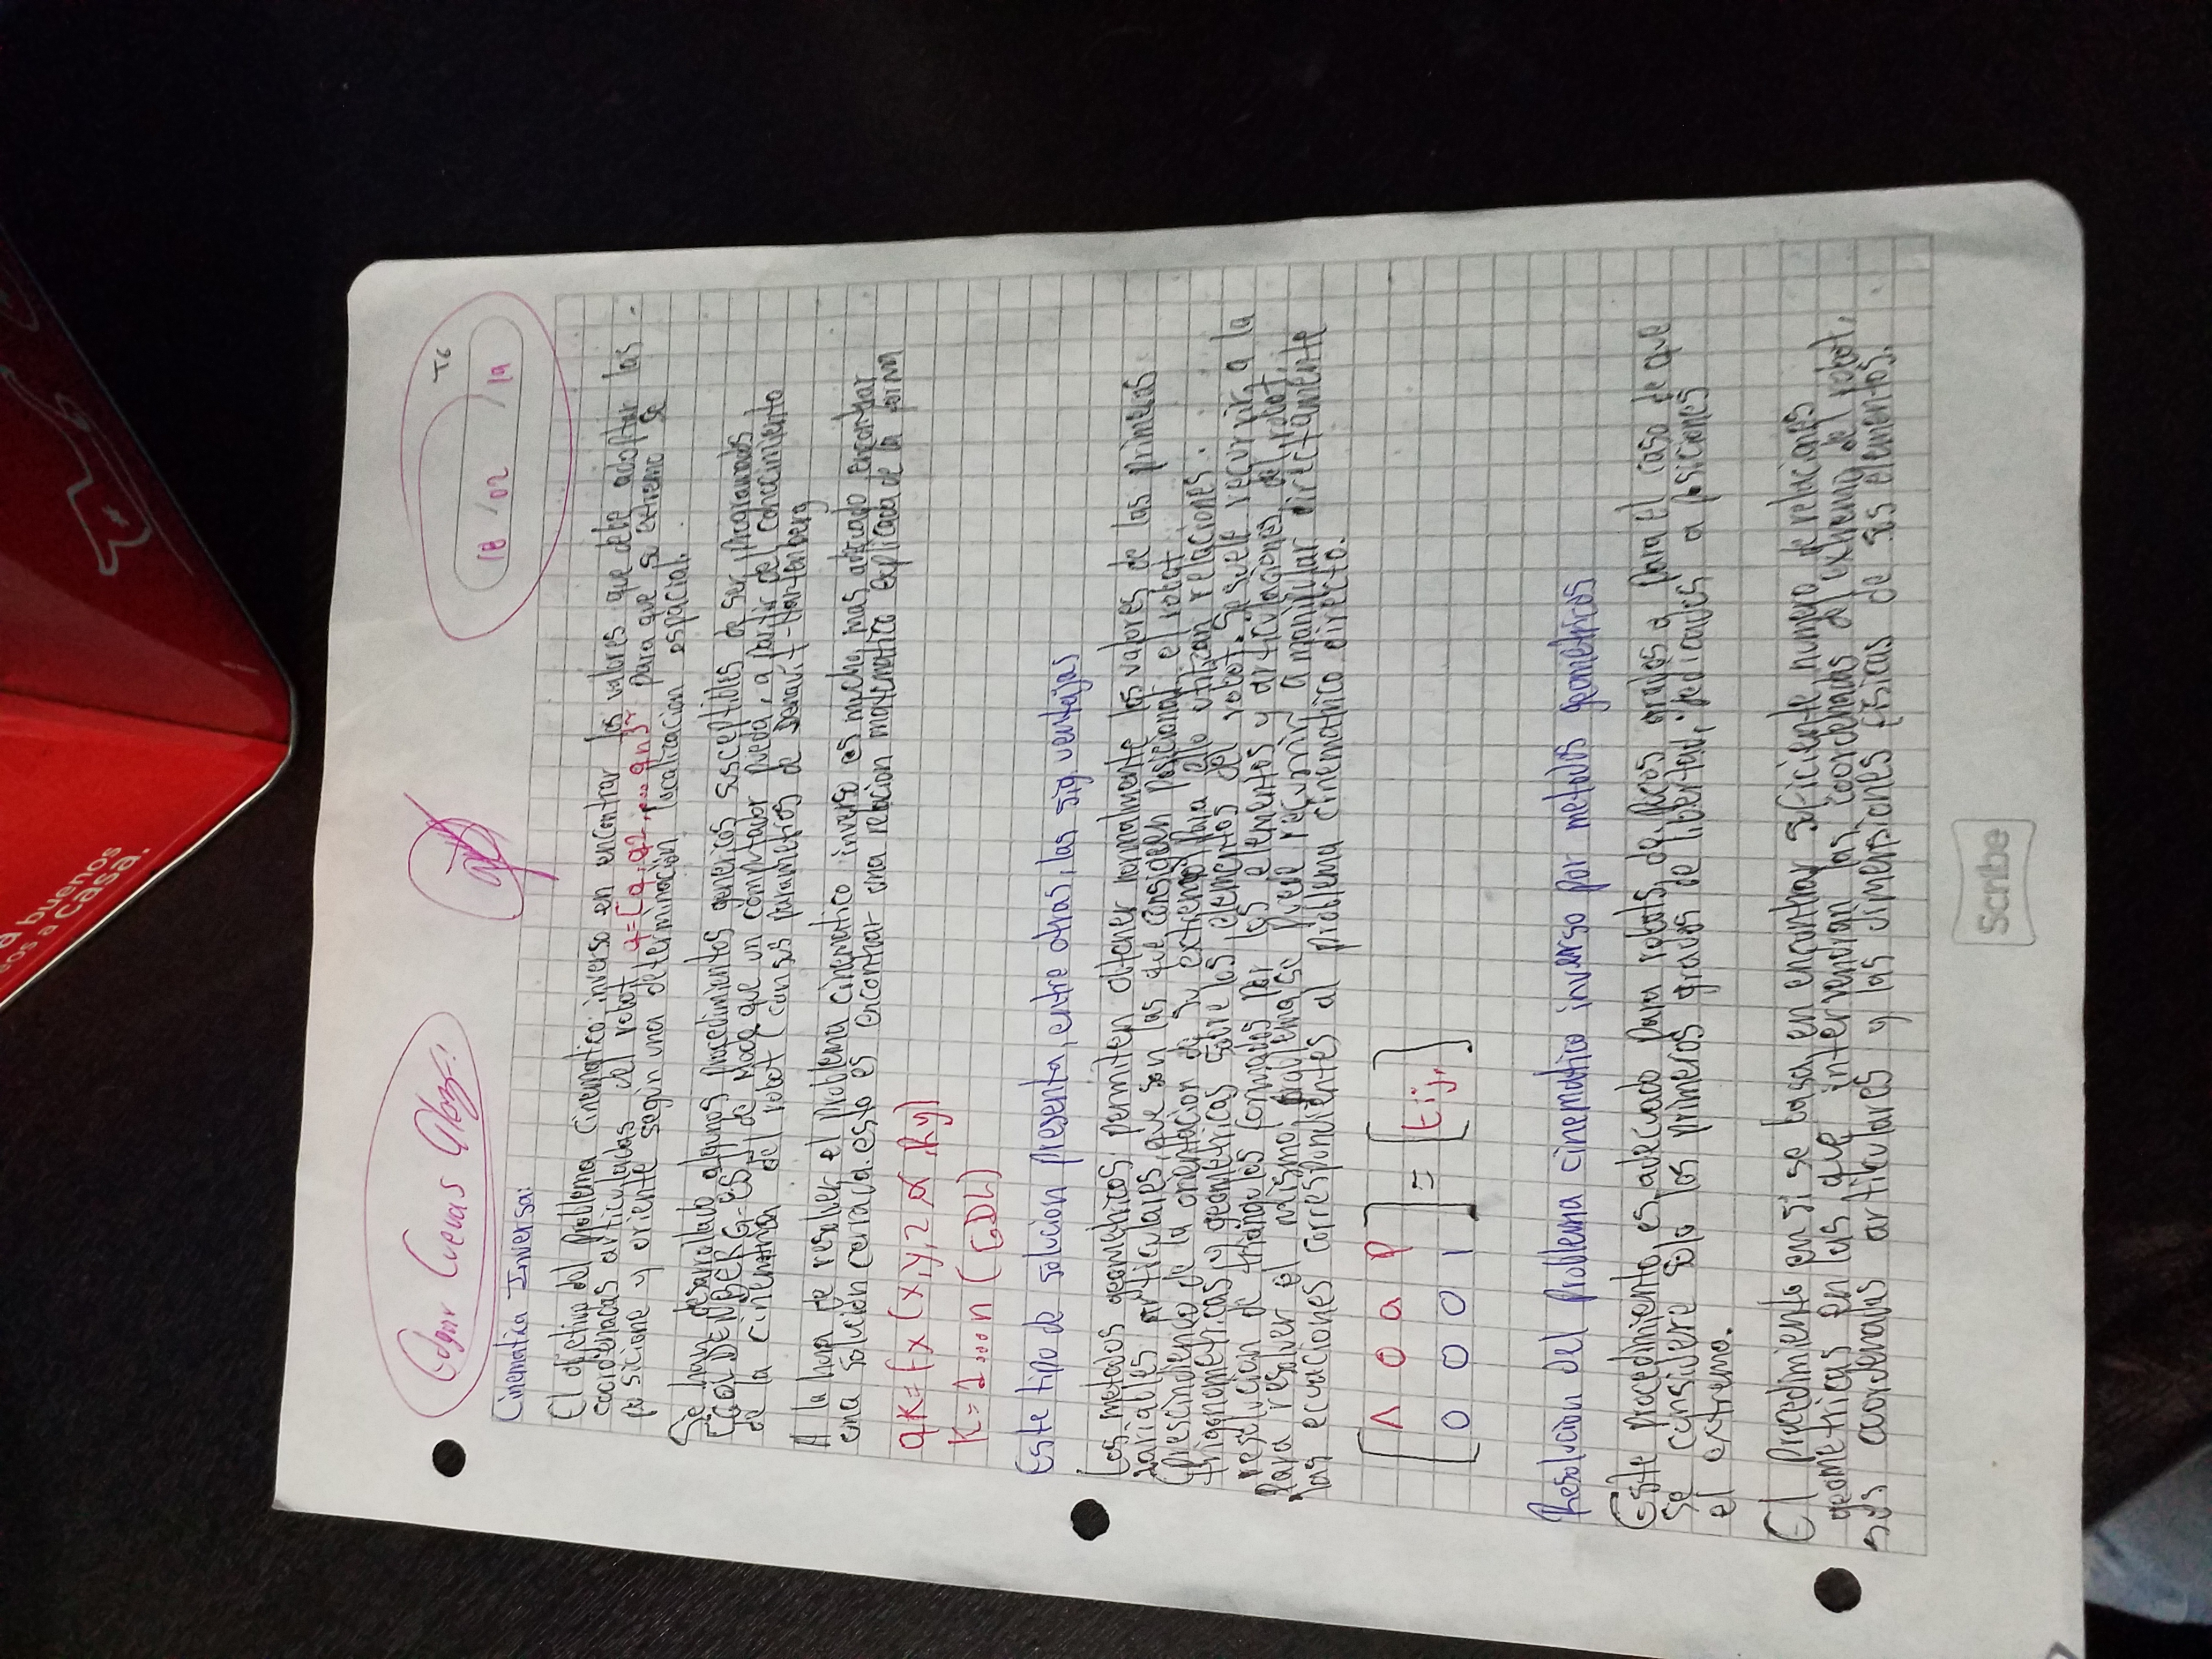 a buenos
sos a casa.
Edgar Cuevas
T6
18 / 02 / 19
Cinematica Inversa:
El objetivo del problema cinematico inverso en encontrar los valores que debe adoptar las
coordenadas articuladas del robot, q=[q, q2, ... qn]ᵀ para que su extremo se
posicione y oriente según una determinación localizacion espacial.
Se han desarrollado algunos procedimientos genericos susceptibles de ser programados
[GOLDENBERG-ES], de modo que un computador pueda, a partir del conocimiento
de la cinematica del robot (con sus parametros de Denavit-Hartenberg
A la hora de resolver el problema cinematico inverso es mucho mas adecuado encontrar
una solución cerrada. esto es encontrar una relacion matematico explicada de la forma
qK = fx (x, y, z, α, βγ)
K = 1...n (GDL)
Este tipo de solucion presenta, entre otras, las sig. ventajas
Los metodos geometricos permiten obtener normalmente los valores de las primeras
variables articulares, que son las que consiguen posicional el robot.
(prescindiendo de la orientacion de su extremo) Para ello utilizan relaciones.
trigonometricas y geometricas sobre los elementos del robot. Se suele recurrir a la
resolucion de triangulos formados por los elementos y articulaciones del robot.
Para resolver el mismo problema se puede recurrir a manipular directamente
las ecuaciones correspondientes al problema cinematico directo.
[ n o a p ] = [ tij, ]
[ 0 0 0 1 ]
Resolucion Del Problema cinematico inverso por metodos geometricos
Este procedimiento es adecuado para robots de pocos grados o para el caso de que
se considere solo los primeros grados de libertad, dedicados a posiciones
el extremo.
El Procedimiento en si se basa en encontrar suficiente numero de relaciones
geometricas en las que intervendran las coordenadas del extremo del robot,
sus coordenadas articulares y las dimensiones fisicas de sus elementos.
Scribe